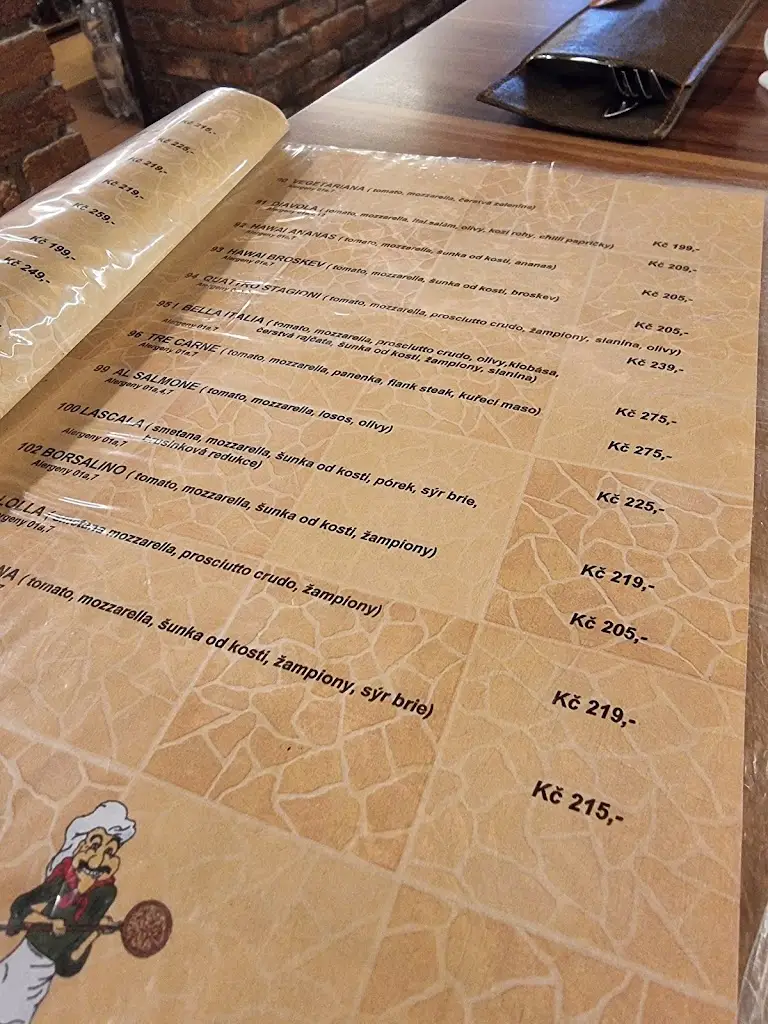 Kč 215,-
Kč 225,-
Kč 219,-
Kč 219,-
Kč 259,-
Kč 199,-
Kč 249,-
90 VEGETARIANA ( tomato, mozzarella, čerstvá zelenina) Kč 199,-
Alergeny 01a,7
91 DIAVOLA ( tomato, mozzarella, ital.salám, olivy, kozí rohy, chilli papričky) Kč 209,-
92 HAWAI ANANAS ( tomato, mozzarella, šunka od kosti, ananas) Kč 205,-
Alergeny 01a,7
93 HAWAI BROSKEV ( tomato, mozzarella, šunka od kosti, broskev) Kč 205,-
Alergeny 01a,7
94 QUATTRO STAGIONI ( tomato, mozzarella, prosciutto crudo, žampiony, slanina, olivy) Kč 239,-
Alergeny 01a,7
95 I BELLA ITALIA ( tomato, mozzarella, prosciutto crudo, olivy,klobása,
čerstvá rajčata, šunka od kosti, žampiony, slanina) Kč 275,-
Alergeny 01a,7
96 TRE CARNE ( tomato, mozzarella, panenka, flank steak, kuřecí maso) Kč 275,-
Alergeny 01a,7
99 AL SALMONE ( tomato, mozzarella, losos, olivy) Kč 225,-
Alergeny 01a,4,7
100 LASCALA ( smetana, mozzarella, šunka od kosti, pórek, sýr brie,
brusinková redukce) Kč 219,-
Alergeny 01a,7
102 BORSALINO ( tomato, mozzarella, šunka od kosti, žampiony) Kč 205,-
Alergeny 01a,7
LOLLA ( smetana mozzarella, prosciutto crudo, žampiony) Kč 219,-
01a,7
NA ( tomato, mozzarella, šunka od kosti, žampiony, sýr brie) Kč 215,-